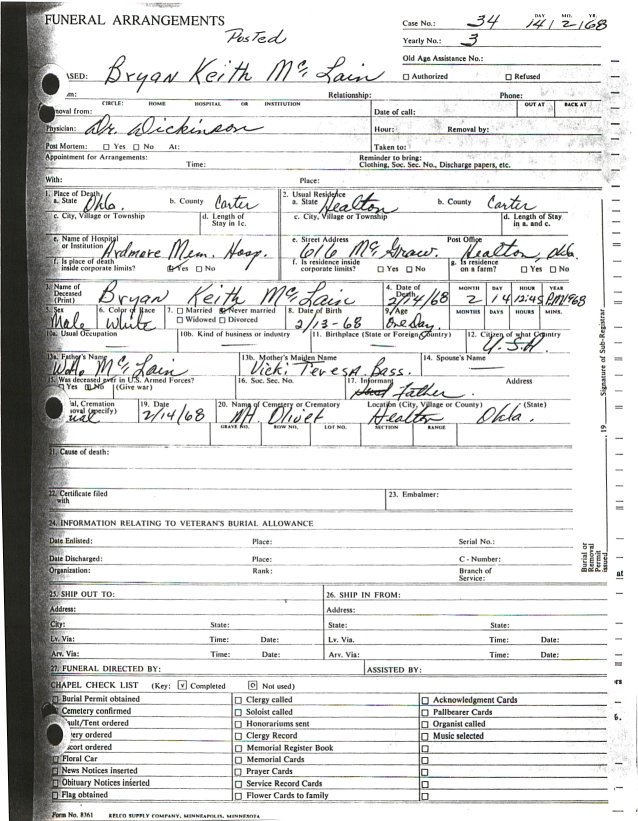 FUNERAL ARRANGEMENTS
Posted
Case No.: 34 14 2 68
DAY MO. YR.
Yearly No.: 3
Old Age Assistance No.:
ASED: Bryan Keith Mc Lain
☐ Authorized ☐ Refused
Relationship: Phone:
CIRCLE: HOME HOSPITAL OR INSTITUTION OUT AT BACK AT
noval from: Date of call:
Physician: Dr. Dickinson Hour: Removal by:
Post Mortem: ☐ Yes ☐ No At: Taken to:
Appointment for Arrangements: Time: Reminder to bring: Clothing, Soc. Sec. No., Discharge papers, etc.
With: Place:
1. Place of Death a. State Okla. b. County Carter 2. Usual Residence a. State Healton b. County Carter
c. City, Village or Township d. Length of Stay in 1c. c. City, Village or Township d. Length of Stay in a. and c.
e. Name of Hospital or Institution Ardmore Mem. Hosp. e. Street Address 616 Mc Graw. Post Office Healton, Okla.
f. Is place of death inside corporate limits? ☑ Yes ☐ No f. Is residence inside corporate limits? ☐ Yes ☐ No g. Is residence on a farm? ☐ Yes ☐ No
3. Name of Deceased (Print) Bryan Keith Mc Lain 4. Date of Death 2/14/68 MONTH DAY HOUR YEAR 2 14 12:45 P.M. 1968
5. Sex Male 6. Color of Race White 7. ☐ Married ☑ Never married ☐ Widowed ☐ Divorced 8. Date of Birth 2/13-68 9. Age One Day. MONTHS DAYS HOURS MINS.
10a. Usual Occupation 10b. Kind of business or industry 11. Birthplace (State or Foreign Country) 12. Citizen of what Country U.S.A
13a. Father's Name Mc Lain 13b. Mother's Maiden Name Vicki Teresa Bass. 14. Spouse's Name
15. Was deceased ever in U.S. Armed Forces? ☐ Yes ☑ No (Give war) 16. Soc. Sec. No. 17. Informant Father Address
ial, Cremation oval (specify) ual 19. Date 2/14/68 20. Name of Cemetery or Crematory Mt. Olivet Location (City, Village or County) (State) Healton Okla.
GRAVE NO. ROW NO. LOT NO. SECTION RANGE
21. Cause of death:
22. Certificate filed with 23. Embalmer:
24. INFORMATION RELATING TO VETERAN'S BURIAL ALLOWANCE
Date Enlisted: Place: Serial No.:
Date Discharged: Place: C - Number:
Organization: Rank: Branch of Service:
Signature of Sub-Registrar
19
Burial or Removal Permit issued
25. SHIP OUT TO: 26. SHIP IN FROM:
Address: Address:
City: State: State: State:
Lv. Via: Time: Date: Lv. Via: Time: Date:
Arv. Via: Time: Date: Arv. Via: Time: Date:
27. FUNERAL DIRECTED BY: ASSISTED BY:
CHAPEL CHECK LIST (Key: ☑ Completed ⊡ Not used)
☐ Burial Permit obtained ☐ Clergy called ☐ Acknowledgment Cards
Cemetery confirmed ☐ Soloist called ☐ Pallbearer Cards
ault/Tent ordered ☐ Honorariums sent ☐ Organist called
ery ordered ☐ Clergy Record ☐ Music selected
cort ordered ☐ Memorial Register Book ☐
☐ Floral Car ☐ Memorial Cards ☐
☐ News Notices inserted ☐ Prayer Cards ☐
☐ Obituary Notices inserted ☐ Service Record Cards ☐
☐ Flag obtained ☐ Flower Cards to family ☐
Form No. 8361 KELCO SUPPLY COMPANY, MINNEAPOLIS, MINNESOTA